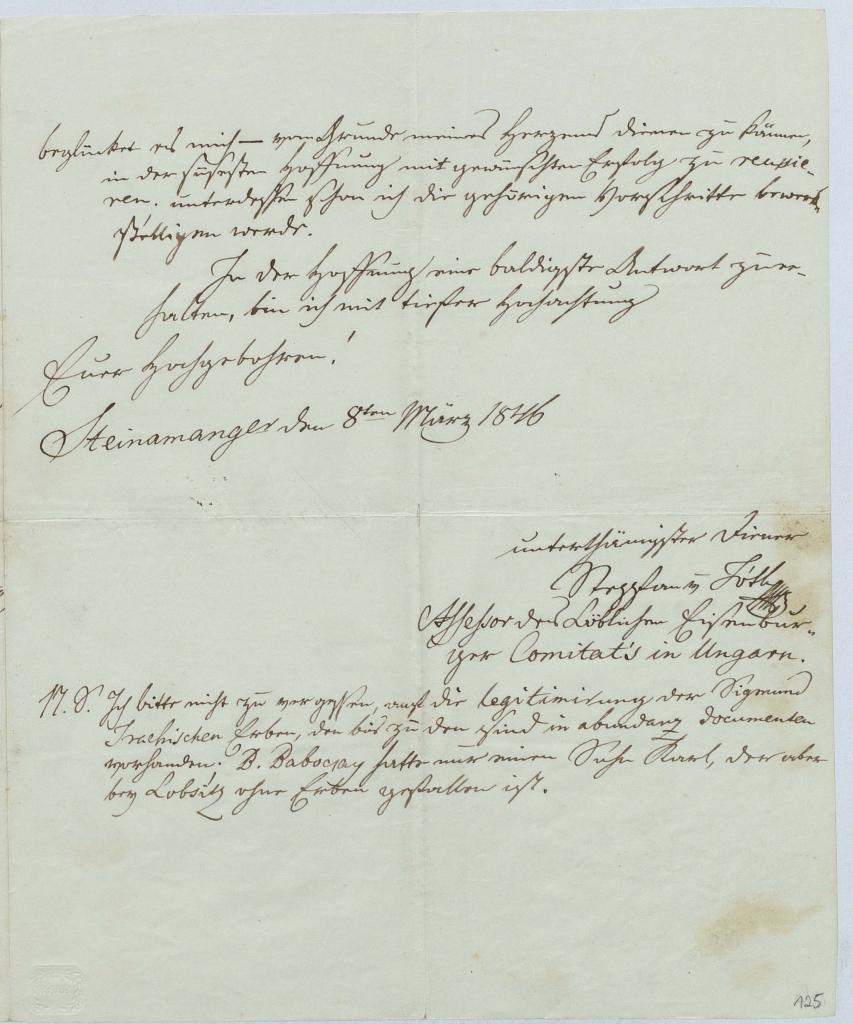 beglücket es mich – vom Grunde meines Herzens dienen zu können,
in der süsesten Hoffnung mit gewünschten Erfolg zu reussie-
ren. unterdessen schon ich die gehörigen Vorschritte bewerk-
stelligen werde.
In der Hoffnung eine baldigste Antwort zu er-
halten, bin ich mit tiefer Hochachtung
Euer Hochgebohren!
Steinamanger den 8ten März 1846
unterthänigster Diener
Stephan v Tóth
Assessor des Löblichen Eisenbur-
ger Comitat's in Ungarn.
N. S. Ich bitte nicht zu vergessen, auf die Legitimirung der Sigmund
Erben, den bis zu den sind in abundanz Documenten
vorhanden. B. Babocsay hatte nur einen Sohn Karl, der aber
bey Lobsitz ohne Erben gefallen ist.
125